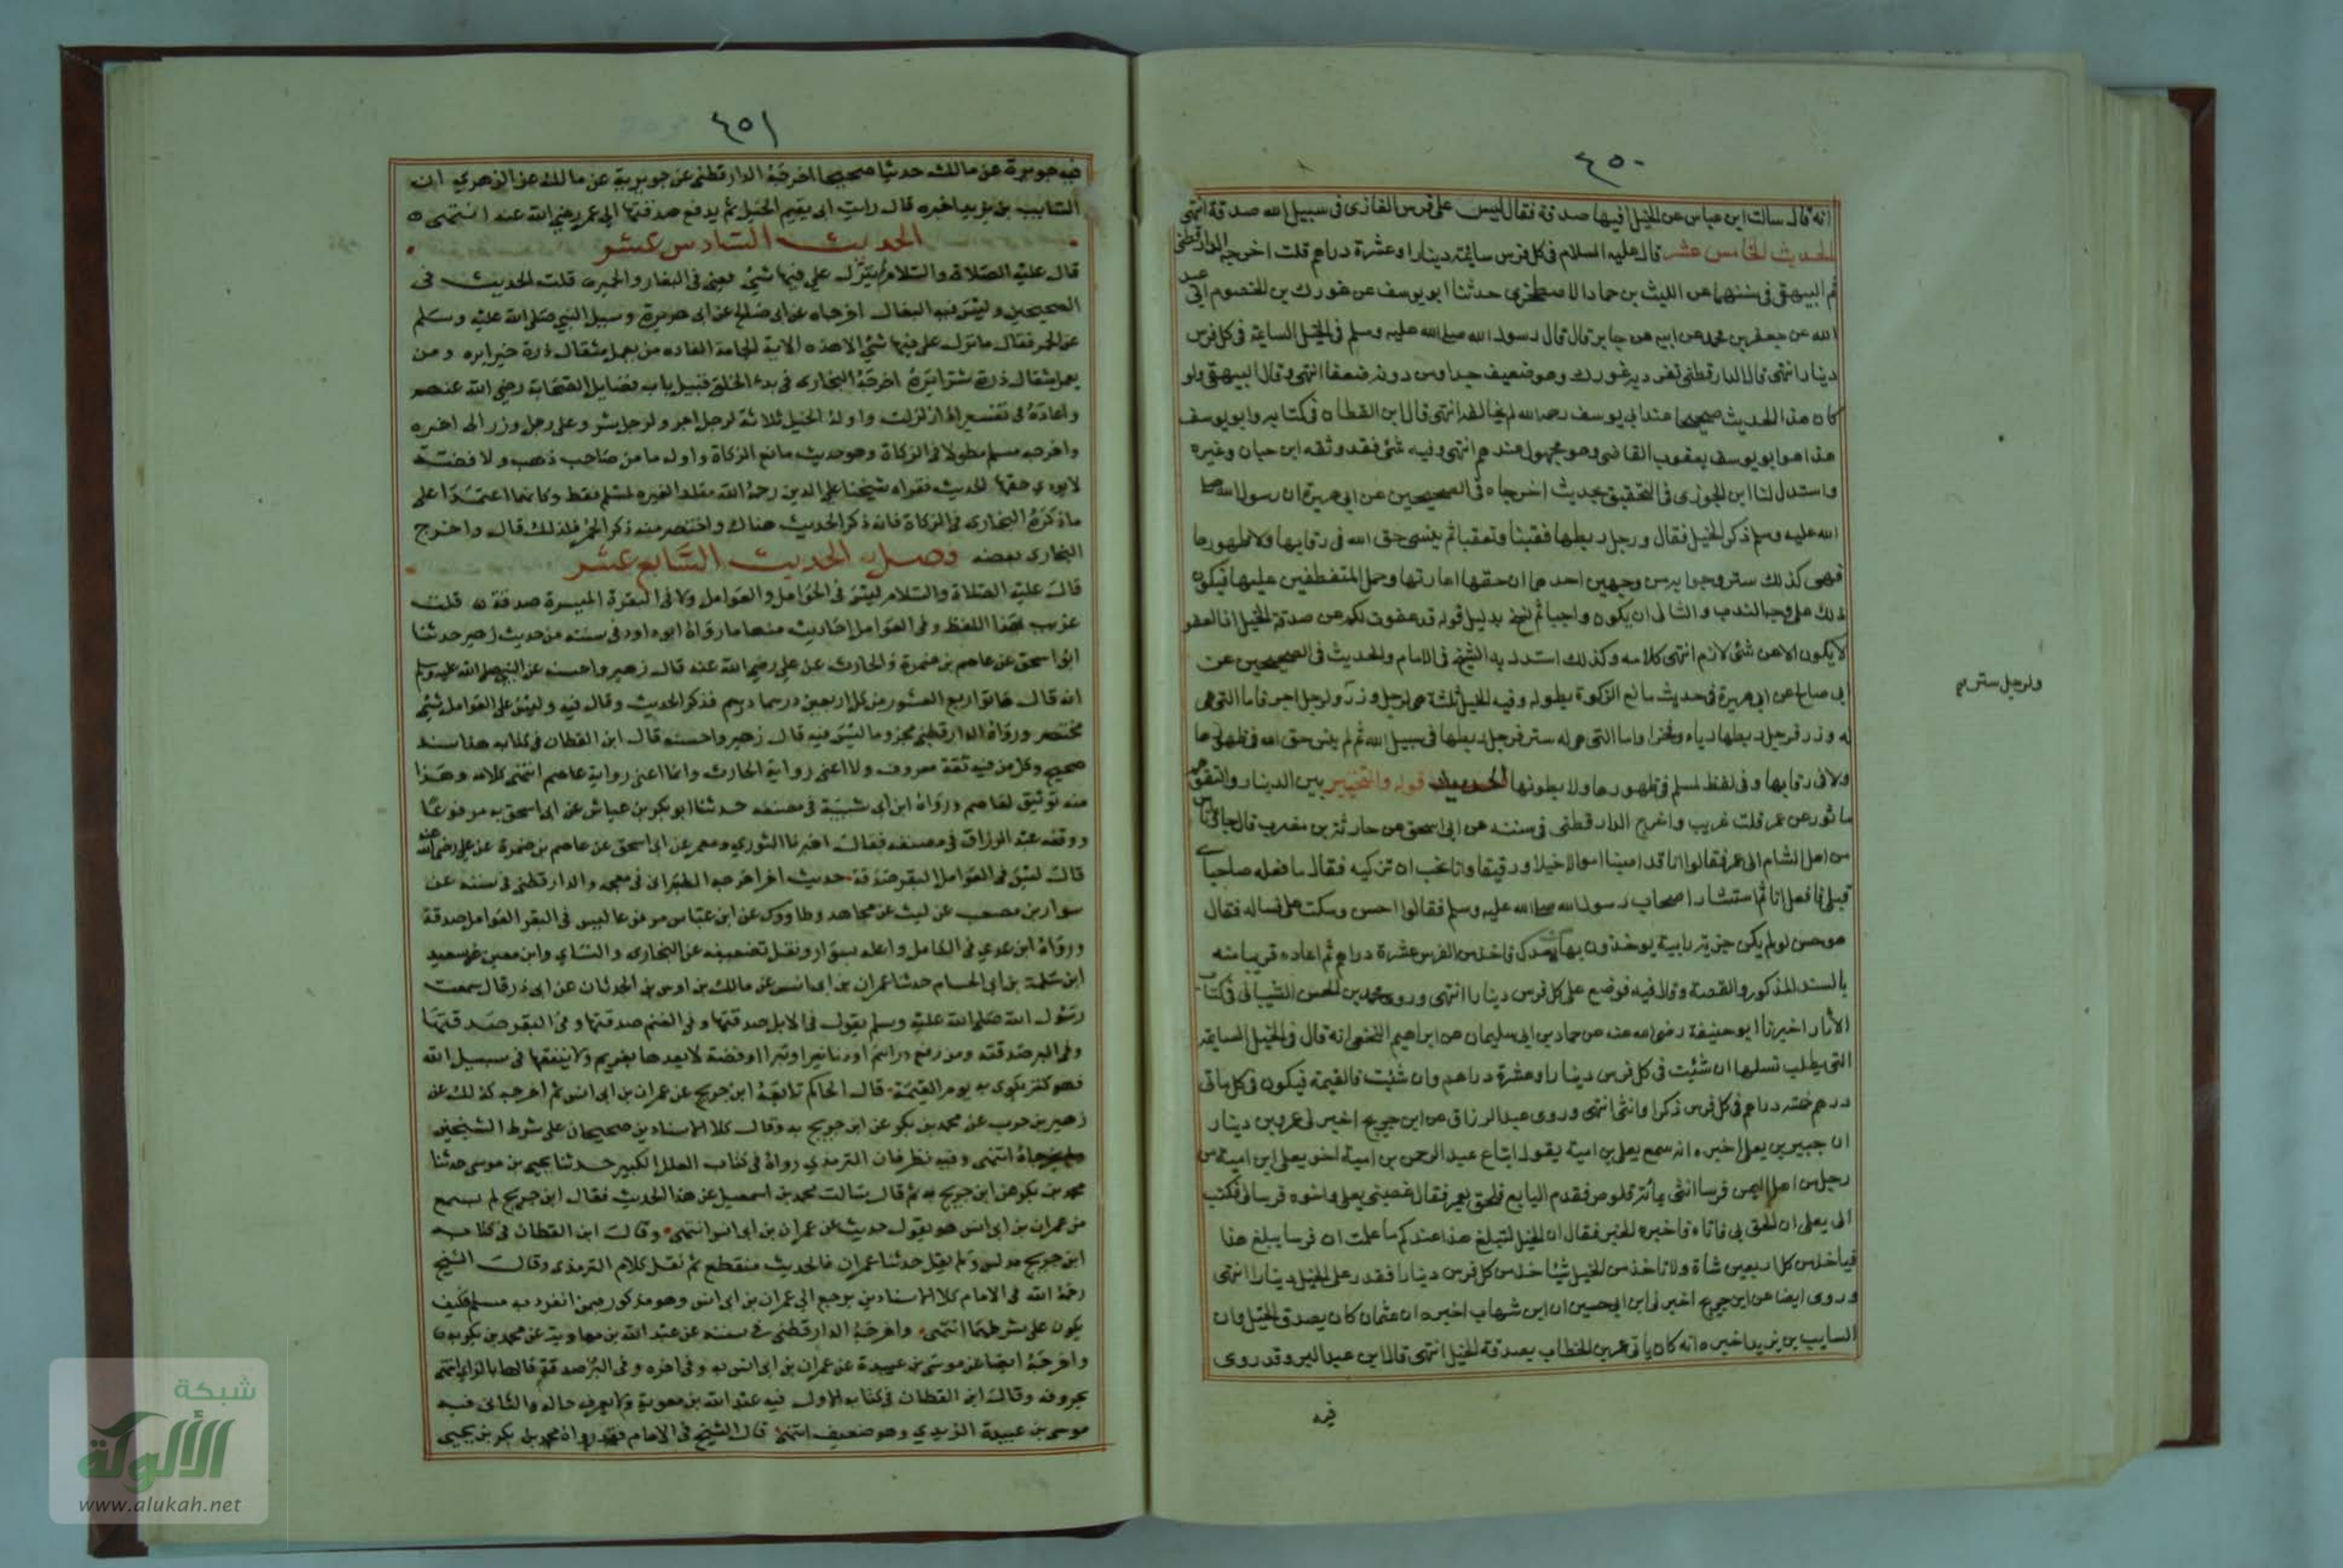 ٤٥٠
انه قال سالت ابن عباس عن الخيل افيها صدقة فقال ليس على فرس الغازى فى سبيل الله صدقة انتهى
الحديث الخامس عشر قال عليه السلام فى كل فرس سائمة دينار او عشرة دراهم قلت اخرجه الدارقطنى
ثم البيهقى فى سننهما عن الليث بن حماد الاصطخرى حدثنا ابو يوسف عن غورك بن الخصوم ابى عبد
الله عن جعفر بن محمد عن ابيه عن جابر قال قال رسول الله صلى الله عليه وسلم فى الخيل السائمة فى كل فرس
دينار انتهى قال الدارقطنى تفرد به غورك وهو ضعيف جدا ومن دونه ضعفا انتهى وقال البيهقى ولو
كان هذا الحديث صحيحا عند ابى يوسف رحمه الله لم يخالفه انتهى قال ابن القطان فى كتابه وابو يوسف
هذا هو ابو يوسف يعقوب القاضى وهو مجهول عندهم انتهى وفيه شئ فقد وثقه ابن حبان وغيره
واستدل لنا ابن الجوزى فى التحقيق بحديث اخرجاه فى الصحيحين عن ابى هريرة ان رسول الله صلى
الله عليه وسلم ذكر الخيل فقال ورجل ربطها تغنيا وتعففا ثم ينسى حق الله فى رقابها ولا ظهورها
فهى كذلك ستر وجوابه من وجهين احدهما ان حقها اعارتها وحمل المنقطعين عليها فيكون
ذلك على وجه الندب والثانى ان يكون واجبا ثم نسخ بدليل قوله قد عفوت لكم عن صدقة الخيل اذ العفو
لا يكون الا عن شئ لازم انتهى كلامه وكذلك استدل به الشيخ فى الامام والحديث فى الصحيحين عن
ابى صالح عن ابى هريرة فى حديث مانع الزكوة بطوله وفيه الخيل ثلثة هى لرجل وزر ولرجل اجر فاما التى هى
له وزر فرجل ربطها رياء وفخرا واما التى هى له ستر فرجل ربطها فى سبيل الله ثم لم ينس حق الله فى ظهورها
ولا فى رقابها وفى لفظ لمسلم فى ظهورها ولا بطونها الحديث قوله والتخيير بين الدينار والتقويم
ماثور عن عمر قلت غريب واخرج الدارقطنى فى سننه عن ابى اسحق عن حارثة بن مضرب قال جاء ناس
من اهل الشام الى عمر فقالوا انا قد اصبنا اموالا خيلا ورقيقا وانا نحب ان تزكيه فقال ما فعله صاحباى
قبلى فافعل انا ثم استشار اصحاب رسول الله صلى الله عليه وسلم فقالوا احسن وسكت على فساله فقال
هو حسن لو لم يكن جزية راتبة يوخذون بها بعدك فاخذ من الفرس عشرة دراهم ثم اعاده قريبا منه
بالسند المذكور والقصة وقال فيه فوضع على كل فرس دينارا انتهى وروى محمد بن الحسن الشيبانى فى كتاب
الآثار اخبرنا ابو حنيفة رضى الله عنه عن حماد بن ابى سليمان عن ابراهيم النخعى انه قال فى الخيل السائمة
التى يطلب نسلها ان شئت فى كل فرس دينار او عشرة دراهم وان شئت فالقيمة فيكون فى كل مائتى
درهم خمسة دراهم فى كل فرس ذكر او انثى انتهى وروى عبد الرزاق عن ابن جريج اخبرنى عمرو بن دينار
ان جبير بن يعلى اخبره انه سمع يعلى بن امية يقول ابتاع عبد الرحمن بن امية اخو يعلى ابن امية من
رجل من اهل اليمن فرسا انثى بمائة قلوص فندم البايع فلحق بعمر فقال غصبنى يعلى واخوه فرسا لى فكتب
الى يعلى ان الحق بى فاتاه فاخبره الخبر فقال ان الخيل لتبلغ هذا عندكم ما علمت ان فرسا يبلغ هذا
فناخذ من كل اربعين شاة ولا ناخذ من الخيل شيئا خذ من كل فرس دينارا فقدر على الخيل دينارا انتهى
وروى ايضا عن ابن جريج اخبرنى ابن ابى حسين ان ابن شهاب اخبره ان عثمان كان يصدق الخيل وان
السايب بن يزيد اخبره انه كان ياتى عمر بن الخطاب بصدقة الخيل انتهى قال ابن عبد البر وقد روى
فيه
ولرجل ستر
٤٥١
فيه جويرية عن مالك حديثا صحيحا اخرجه الدارقطنى عن جويرية عن مالك عن الزهري ان
السايب بن يزيد اخبره قال رايت ابى يقيم الخيل ثم يدفع صدقتها الى عمر رضي الله عنه انتهى
الحديث السادس عشر
قال عليه الصلاة والسلام لم ينزل علي فيها شئ يعنى فى البغال والحمير قلت الحديث فى
الصحيحين وليس فيه البغال اخرجاه عن ابى صالح عن ابى هريرة وسيل النبي صلى الله عليه وسلم
عن الحمر فقال ما نزل على فيها شئ الا هذه الاية الجامعة الفاذه من يعمل مثقال ذرة خيرا يره ومن
يعمل مثقال ذرة شرا يره اخرجه البخارى فى بدء الخلق قبيل باب فضايل الصحابة رضي الله عنهم
واعاده فى تفسير اذا زلزلت واوله الخيل ثلاثة لرجل اجر ولرجل ستر وعلى رجل وزر الى اخره
واخرجه مسلم مطولا فى الزكاة وهو حديث مانع الزكاة واوله ما من صاحب ذهب ولا فضة
لا يودي حقها الحديث فعزاه شيخنا علاء الدين رحمه الله مقلدا لغيره لمسلم فقط وكانهما اعتمدا على
ما ذكره البخارى فى الزكاة فانه ذكر الحديث هناك واختصر منه ذكر الحمر فلذلك قال واخرج
البخارى بعضه فصل الحديث السابع عشر
قال عليه الصلاة والسلام ليس فى الحوامل والعوامل ولا فى البقرة المثيرة صدقة قلت
غريب بهذا اللفظ وفى العوامل احاديث منها ما رواه ابو داود فى سننه من حديث زهير حدثنا
ابو اسحق عن عاصم بن ضمرة والحارث عن علي رضي الله عنه قال زهير واحسبه عن النبي صلى الله عليه وسلم
انه قال هاتوا ربع العشور من كل اربعين درهما درهم فذكر الحديث وقال فيه وليس على العوامل شئ
مختصر ورواه الدارقطنى مجزوما ليس فيه قال زهير واحسبه قال ابن القطان فى كتابه هذا سند
صحيح وكل من فيه ثقة معروف ولا اعنى رواية الحارث وانما اعنى رواية عاصم انتهى كلامه وهذا
منه توثيق لعاصم ورواه ابن ابى شيبة فى مصنفه حدثنا ابو بكر بن عياش عن ابى اسحق به مرفوعا
ووقفه عبد الرزاق فى مصنفه فقال اخبرنا الثوري ومعمر عن ابى اسحق عن عاصم بن ضمرة عن علي رضي الله عنه
قال ليس فى العوامل البقر صدقة حديث اخر اخرجه الطبرانى فى معجمه والدارقطنى فى سننه عن
سوار بن مصعب عن ليث عن مجاهد وطاووس عن ابن عباس مرفوعا ليس فى البقر العوامل صدقة
ورواه ابن عدي فى الكامل واعله بسوار ونقل تضعيفه عن البخارى والنساي وابن معين عن سعيد
ابن سلمة بن ابى الحسام حدثنا عمران بن ابى انس عن مالك بن اوس بن الحدثان عن ابى ذر قال سمعت
رسول الله صلى الله عليه وسلم يقول فى الابل صدقتها وفى الغنم صدقتها وفى البقر صدقتها
وفى البر صدقته ومن رفع دراهم او دنانير او تبرا او فضة لا يعدها لغريم ولا ينفقها فى سبيل الله
فهو كنز يكوى به يوم القيمة قال الحاكم تابعه ابن جريج عن عمران بن ابى انس ثم اخرجه كذلك عن
زهير بن حرب عن محمد بن بكر عن ابن جريج به وقال كلا الاسنادين صحيحان على شرط الشيخين
ولم يخرجاه انتهى وفيه نظر فان الترمذي رواه فى كتاب العلل الكبير حدثنا يحيى بن موسى حدثنا
محمد بن بكر عن ابن جريج به ثم قال سالت محمد بن اسمعيل عن هذا الحديث فقال ابن جريج لم يسمع
من عمران بن ابى انس هو يقول حديث عن عمران بن ابى انس انتهى وقال ابن القطان فى كتابه
ابن جريج مدلس ولم يقل حدثنا عمران فالحديث منقطع ثم نقل كلام الترمذى وقال الشيخ
رحمه الله فى الامام كلا الاسنادين يرجع الى عمران بن ابى انس وهو مذكور فيمن انفرد به مسلم فكيف
يكون على شرطهما انتهى واخرجه الدارقطنى فى سننه عن عبد الله بن معاوية عن محمد بن بكر به
واخرجه ايضا عن موسى بن عبيدة عن عمران بن ابى انس به وفى اخره وفى البز صدقة قالها بالزاي انتهى
بحروفه وقال ابن القطان فى كتابه الاول فيه عبد الله بن معوية ولا يعرف حاله والثانى فيه
موسى بن عبيدة الربدي وهو ضعيف انتهى قال الشيخ فى الامام فقد رواه محمد بن بكر بن يحيى
شبكة
الألوكة
www.alukah.net